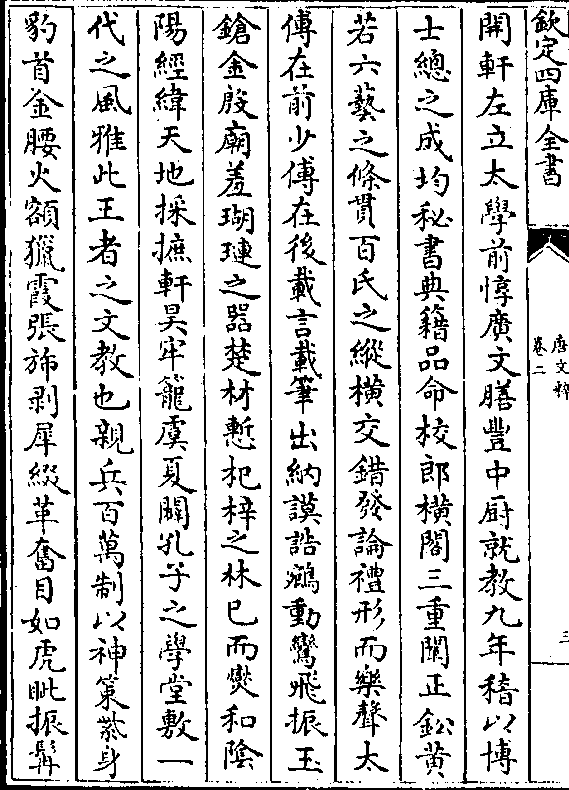 欽定四庫全書
唐文粹
卷二
三
開軒左立太學前惇廣文膳豐中厨就教九年稽以博
士總之成均秘書典籍品命校郎橫閣三重闈正鈆黄
若六藝之條貫百氏之縱橫交錯發論禮形而樂聲太
傅在前少傅在後載言載筆出納謨誥鵷動鸞飛振玉
鎗金殷廟羞瑚璉之器楚材慙杞梓之林已而爕和陰
陽經緯天地採摭軒昊牢籠虞夏闢孔子之學堂敷一
代之風雅此王者之文教也親兵百萬制以神策身
豹首金腰火額獵霞張斾剥犀綴革奮目如虎眦振髯